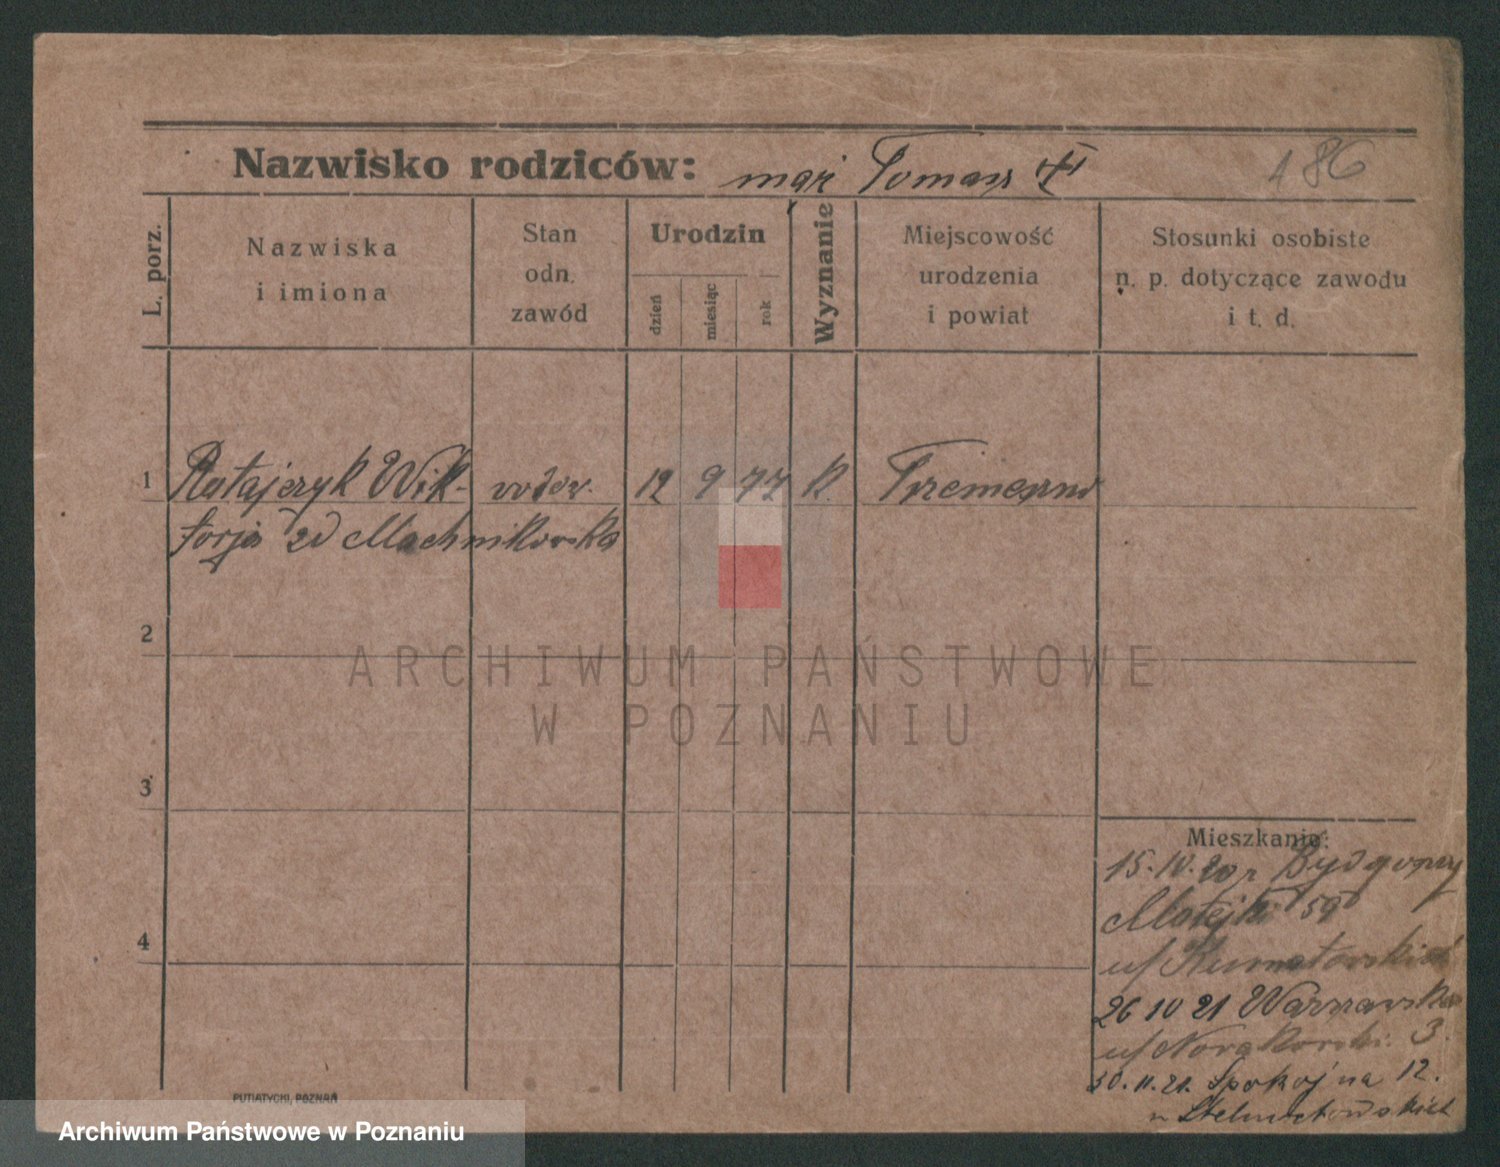 Nazwisko rodziców: mąż Tomasz 186
L. porz.
Nazwiska
i imiona
Stan
odn.
zawód
Urodzin
dzień
miesiąc
rok
Wyznanie
Miejscowość
urodzenia
i powiat
Stosunki osobiste
n. p. dotyczące zawodu
i t. d.
1 Ratajczyk Wik- wdow. 12 9 77 k. Trzemeszno
torja zd Machnikowska
2
ARCHIWUM PAŃSTWOWE
W POZNANIU
3
4
Mieszkanie:
15.10.20 z Bydgoszczy
Matejki 59
u/
26 10 21 Warszawska
u/ 3.
30.11.21. Spokojna 12.
u
PUTIATYCKI, POZNAŃ
Archiwum Państwowe w Poznaniu